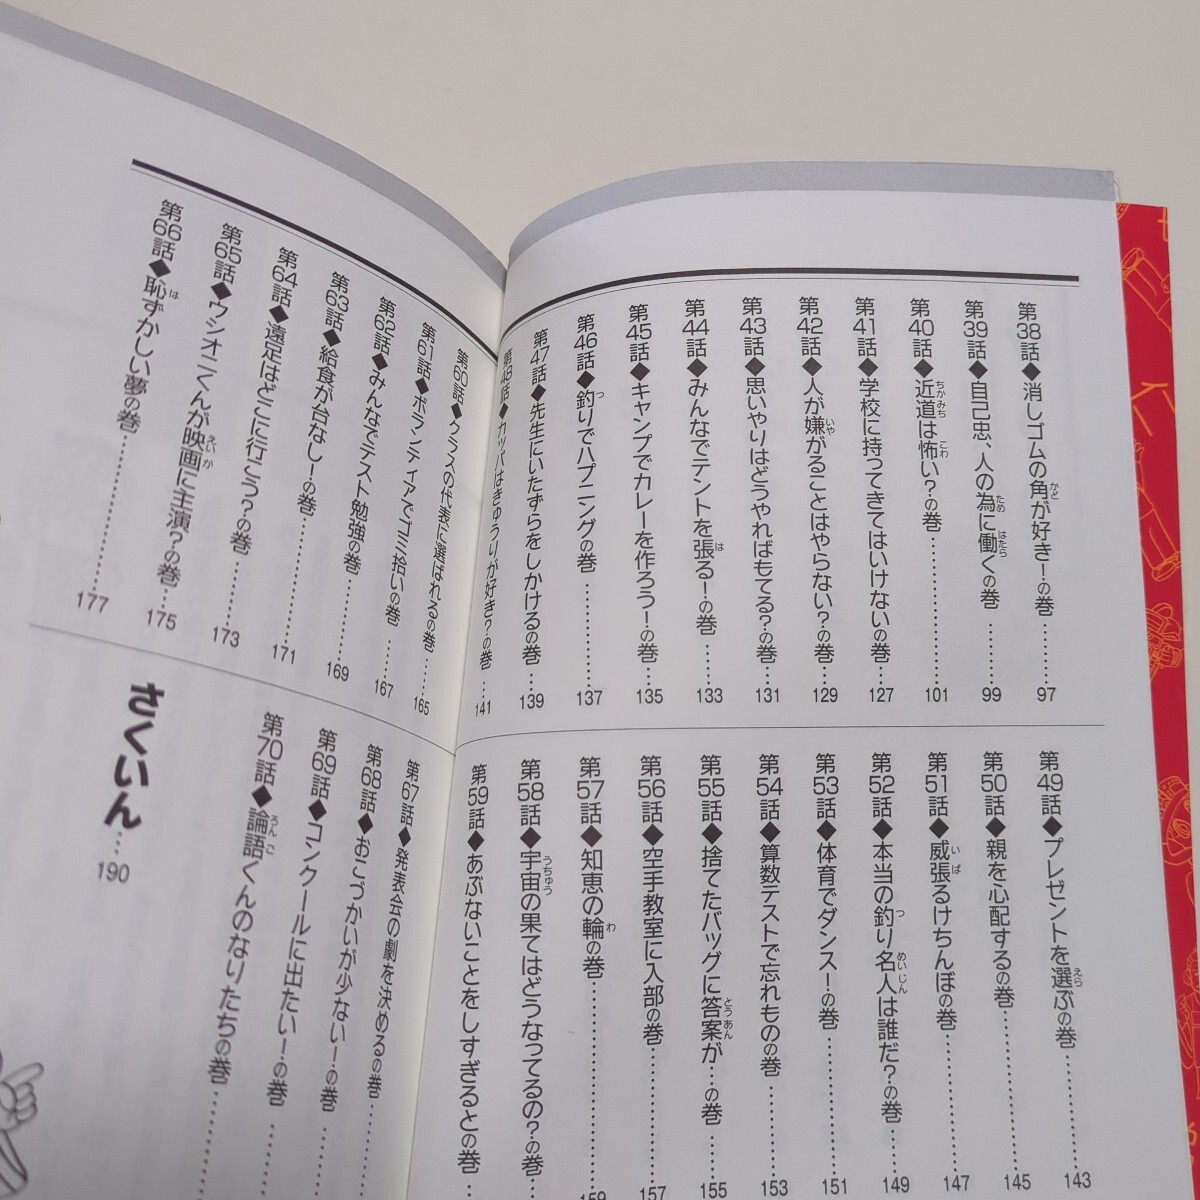 第38話◆消しゴムの角が好き！の巻……97
かど
第39話◆自己忠、人の為に働くの巻……99
ため
はたら
第40話◆近道は怖い？の巻……101
ちかみち
こわ
第41話◆学校に持ってきてはいけないの巻……127
第42話◆人が嫌がることはやらない？の巻……129
いや
第43話◆思いやりはどうやればもてる？の巻……131
第44話◆みんなでテントを張る！の巻……133
は
第45話◆キャンプでカレーを作ろう！の巻……135
第46話◆釣りでハプニングの巻……137
つ
第47話◆先生にいたずらをしかけるの巻……139
第48話◆カッパはきゅうりが好き？の巻……141
第49話◆プレゼントを選ぶの巻……143
えら
第50話◆親を心配するの巻……145
第51話◆威張るけちんぼの巻……147
いば
第52話◆本当の釣り名人は誰だ？の巻……149
つ
めいじん
第53話◆体育でダンス！の巻……151
第54話◆算数テストで忘れものの巻……153
第55話◆捨てたバッグに答案が…の巻……155
とうあん
第56話◆空手教室に入部の巻……157
第57話◆知恵の輪の巻……159
わ
第58話◆宇宙の果てはどうなってるの？の巻……
うちゅう
第59話◆あぶないことをしすぎるとの巻……
第60話◆クラスの代表に選ばれるの巻……165
第61話◆ボランティアでゴミ拾いの巻……167
第62話◆みんなでテスト勉強の巻……169
第63話◆給食が台なし！の巻……171
第64話◆遠足はどこに行こう？の巻……173
第65話◆ウシオニくんが映画に主演？の巻……175
えいが
第66話◆恥ずかしい夢の巻……177
は
第67話◆発表会の劇を決めるの巻……
第68話◆おこづかいが少ない！の巻……
第69話◆コンクールに出たい！の巻……
第70話◆論語くんのなりたちの巻……
ろんご
さくいん…190